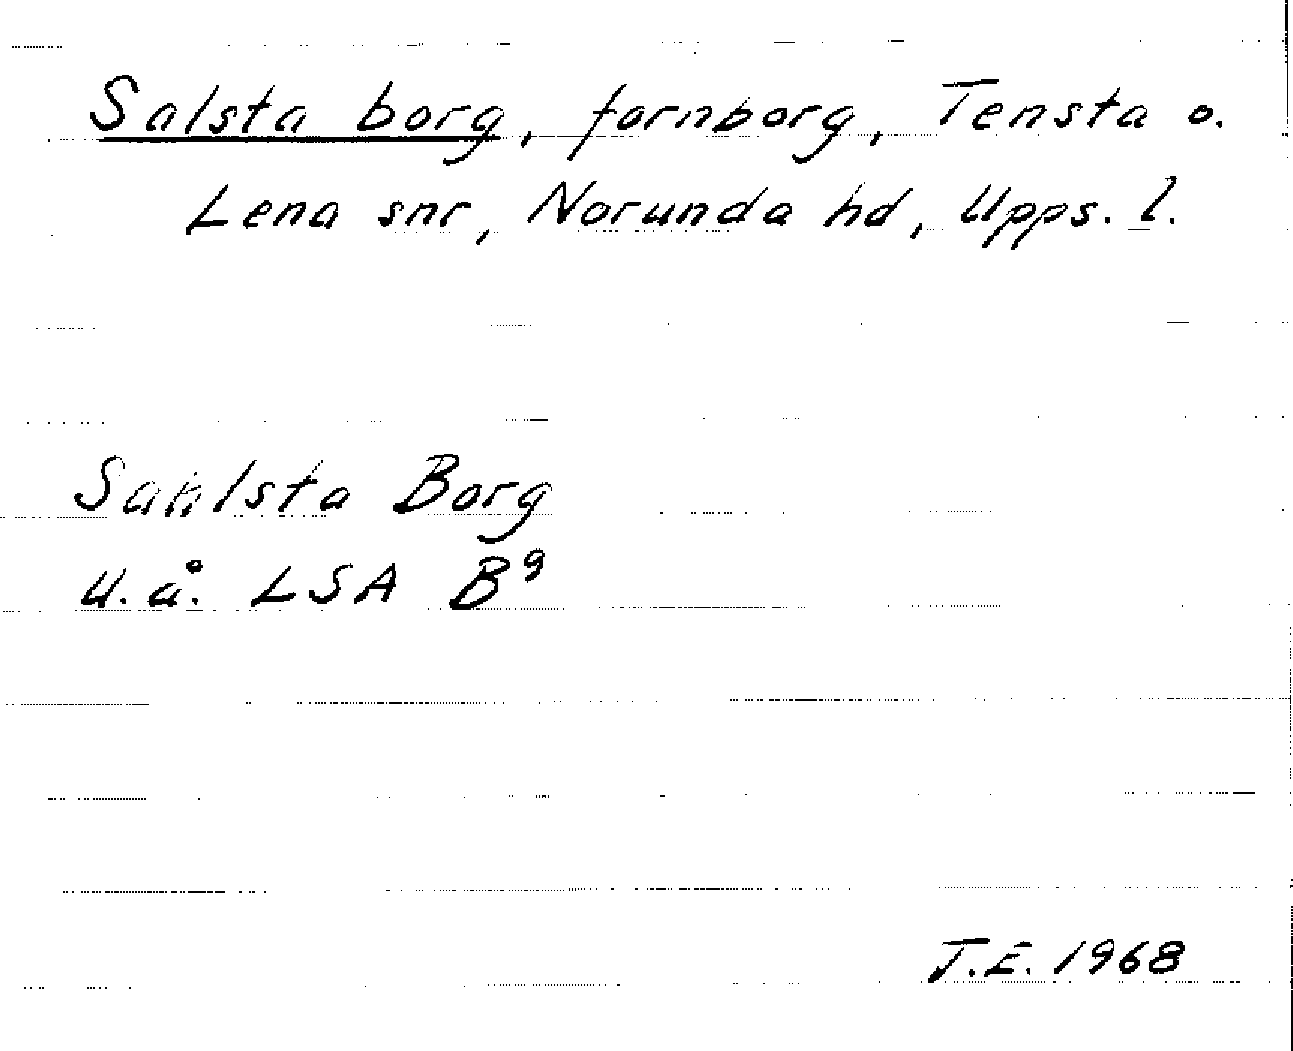 Salsta borg, fornborg, Tensta o.
Lena snr, Norunda hd, Upps. l.
Sahlsta Borg
u. å. LSA B⁹
J.E. 1968